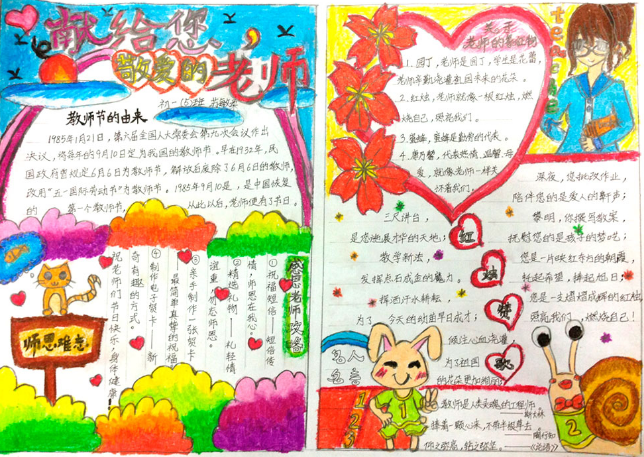 献给您，
敬爱的老师
初一15班
教师节的由来
1985年1月21日，第六届全国人大常委会第九次会议作出
决议，将每年的9月10日定为我国的教师节。早在1932年，民
国政府曾规定6月6日为教师节，解放后废除了6月6日的教师节，
改用“五一国际劳动节”为教师节。1985年9月10是，是中国恢复
的 第一个教师节， 从此以后，老师便有3节日。
感恩老师攻略
①祝福短信——短信传
情，师恩在我心。
②精选礼物——礼轻情
谊重
③亲手制作一张贺卡
——最简单真挚的祝福
④制作电子贺卡——新
奇有趣的方式。
祝老师们节日快乐，身体健康！
师恩难忘
老师的象征物
1、园丁，老师是园丁，学生是花蕾，
老师辛勤浇灌祖国未来的花朵。
2、红烛，老师就像一根红烛，燃
烧自己，照亮我们。
3、蜜蜂，蜜蜂是勤劳的代表。
4、康乃馨，代表热情，温馨，母
爱，就像老师一样关
怀着我们。
teacher
红
烛
赞
歌
三尺讲台，
是您施展才华的天地；
教学新法，
发挥点石成金的魔力。
挥洒汗水耕耘，
为了 今天的幼苗早日成才；
倾注心血浇灌，
为了祖国
的花朵更加
深夜，您批改作业，
陪伴您的是爱人的鼾声；
黎明，你撰写教案，
抚慰您的是孩子的梦呓；
您是一片映红寺内的朝霞，
托起希望，捧起旭日；
您是一支熠熠成辉的红烛
照亮我们，燃烧自己！
名人
名言
教师是人类灵魂的工程师
——斯大林
捧着一颗心来，不带半根草去
——陶行知
仰之弥高，钻之弥坚。——《论语》
1
2
1 2 1